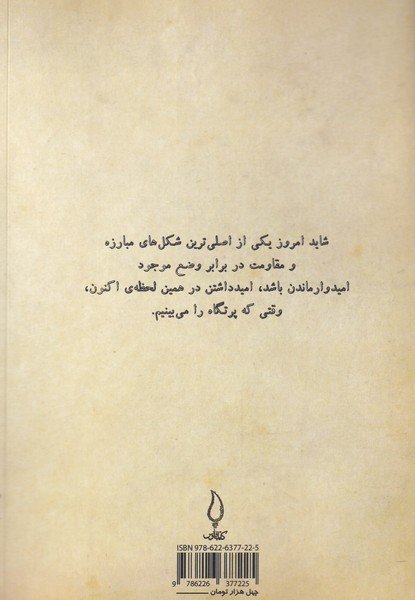 شاید امروز یکی از اصلی‌ترین شکل‌های مبارزه
و مقاومت در برابر وضع موجود
امیدوارماندن باشد، امیدداشتن در همین لحظه‌ی اکنون،
وقتی که پرتگاه را می‌بینیم.
ISBN 978-622-6377-22-5
9 786226 377225
چهل هزار تومان